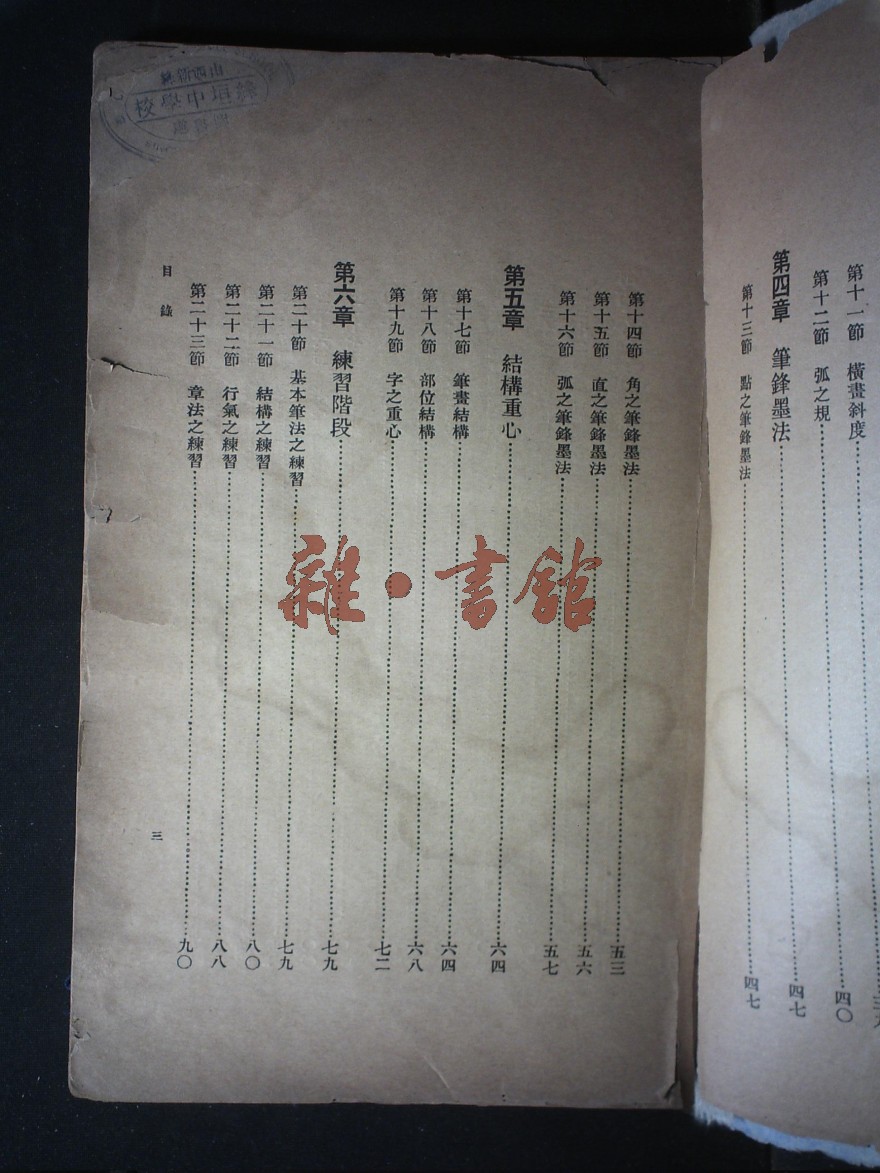 第十一節 橫畫斜度
第十二節 弧之規 四〇
第四章 筆鋒墨法 四七
第十三節 點之筆鋒墨法 四七
第十四節 角之筆鋒墨法 五三
第十五節 直之筆鋒墨法 五六
第十六節 弧之筆鋒墨法 五七
第五章 結構重心 六四
第十七節 筆畫結構 六四
第十八節 部位結構 六八
第十九節 字之重心 七二
第六章 練習階段 七九
第二十節 基本筆法之練習 七九
第二十一節 結構之練習 八〇
第二十二節 行氣之練習 八八
第二十三節 章法之練習 九〇
目錄
三
雜·書館